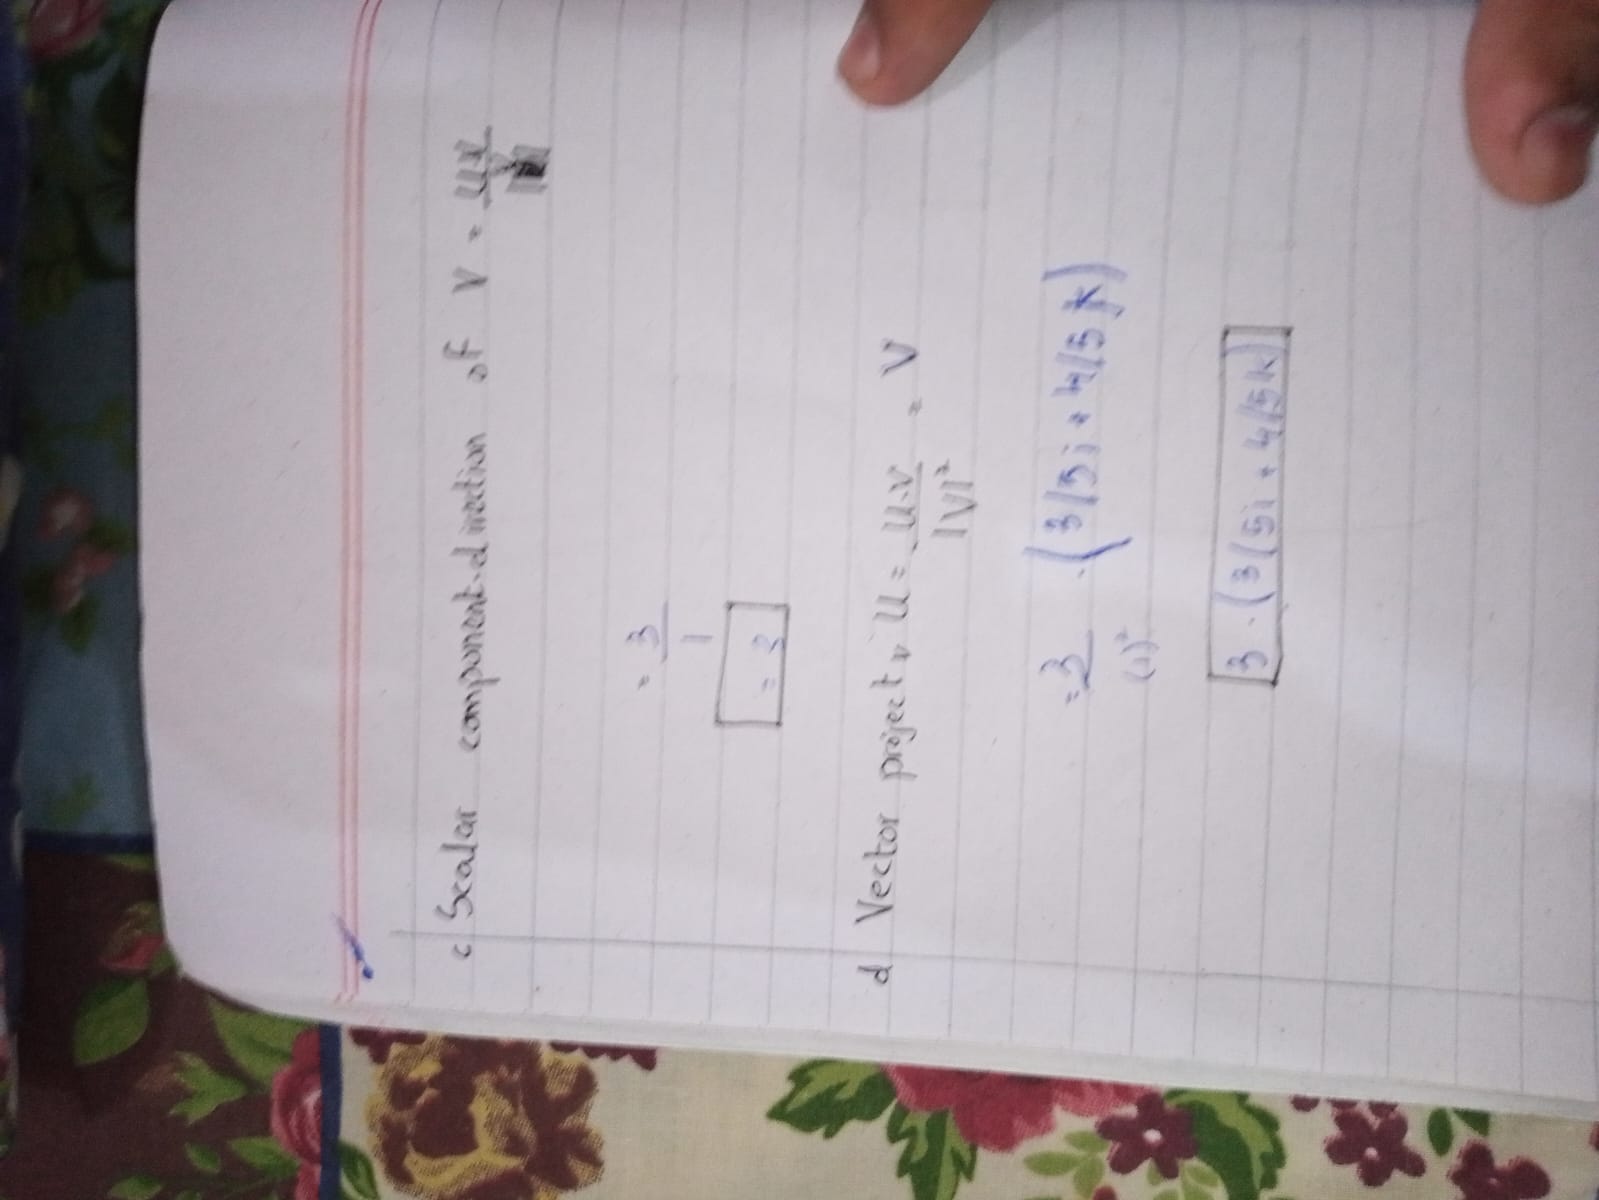 c Scalar component direction of V = U.V
|V|
= 3
1
= 3
d Vector project v U = U.V = V
|V|²
= 3 . (3/5i + 4/5 k)
(1)²
3 . (3/5i + 4/5k)